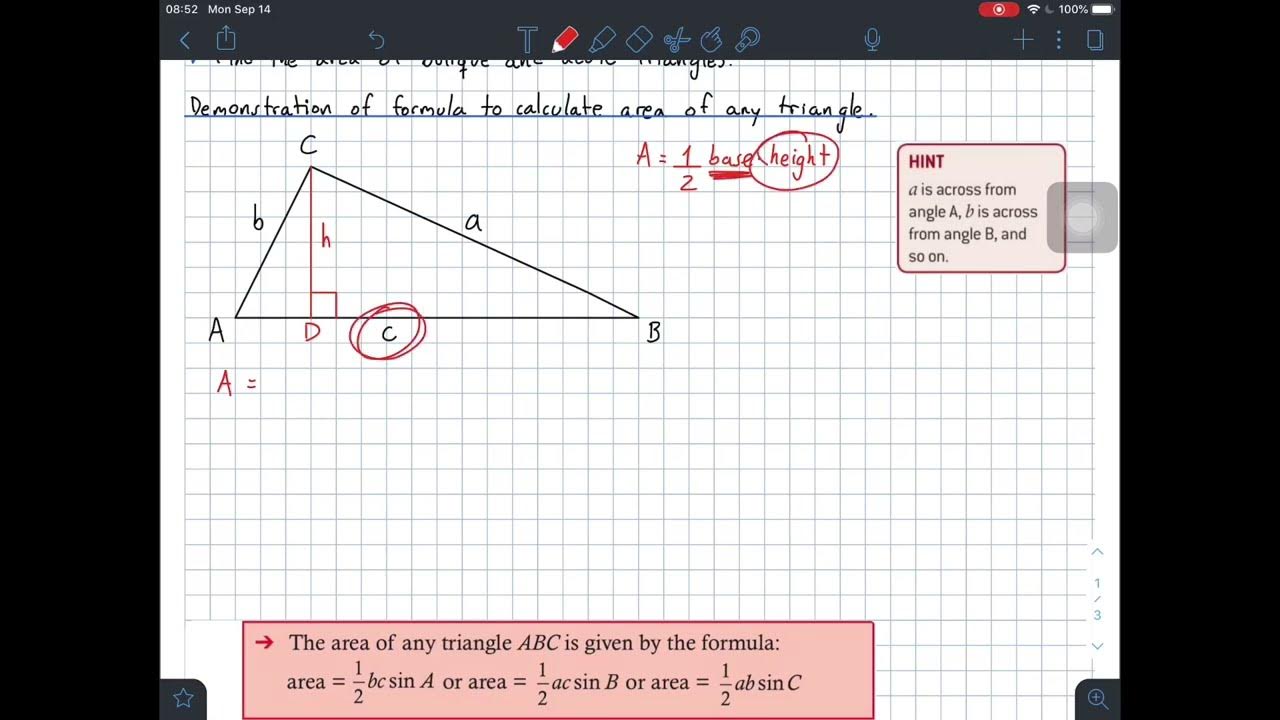 08:52 Mon Sep 14 100%
the area of oblique and acute triangles.
Demonstration of formula to calculate area of any triangle.
C
A = 1/2 base × height
HINT
a is across from
angle A, b is across
from angle B, and
so on.
b
a
h
A
D
c
B
A =
1
/
3
→ The area of any triangle ABC is given by the formula:
area = 1/2 bc sin A or area = 1/2 ac sin B or area = 1/2 ab sin C